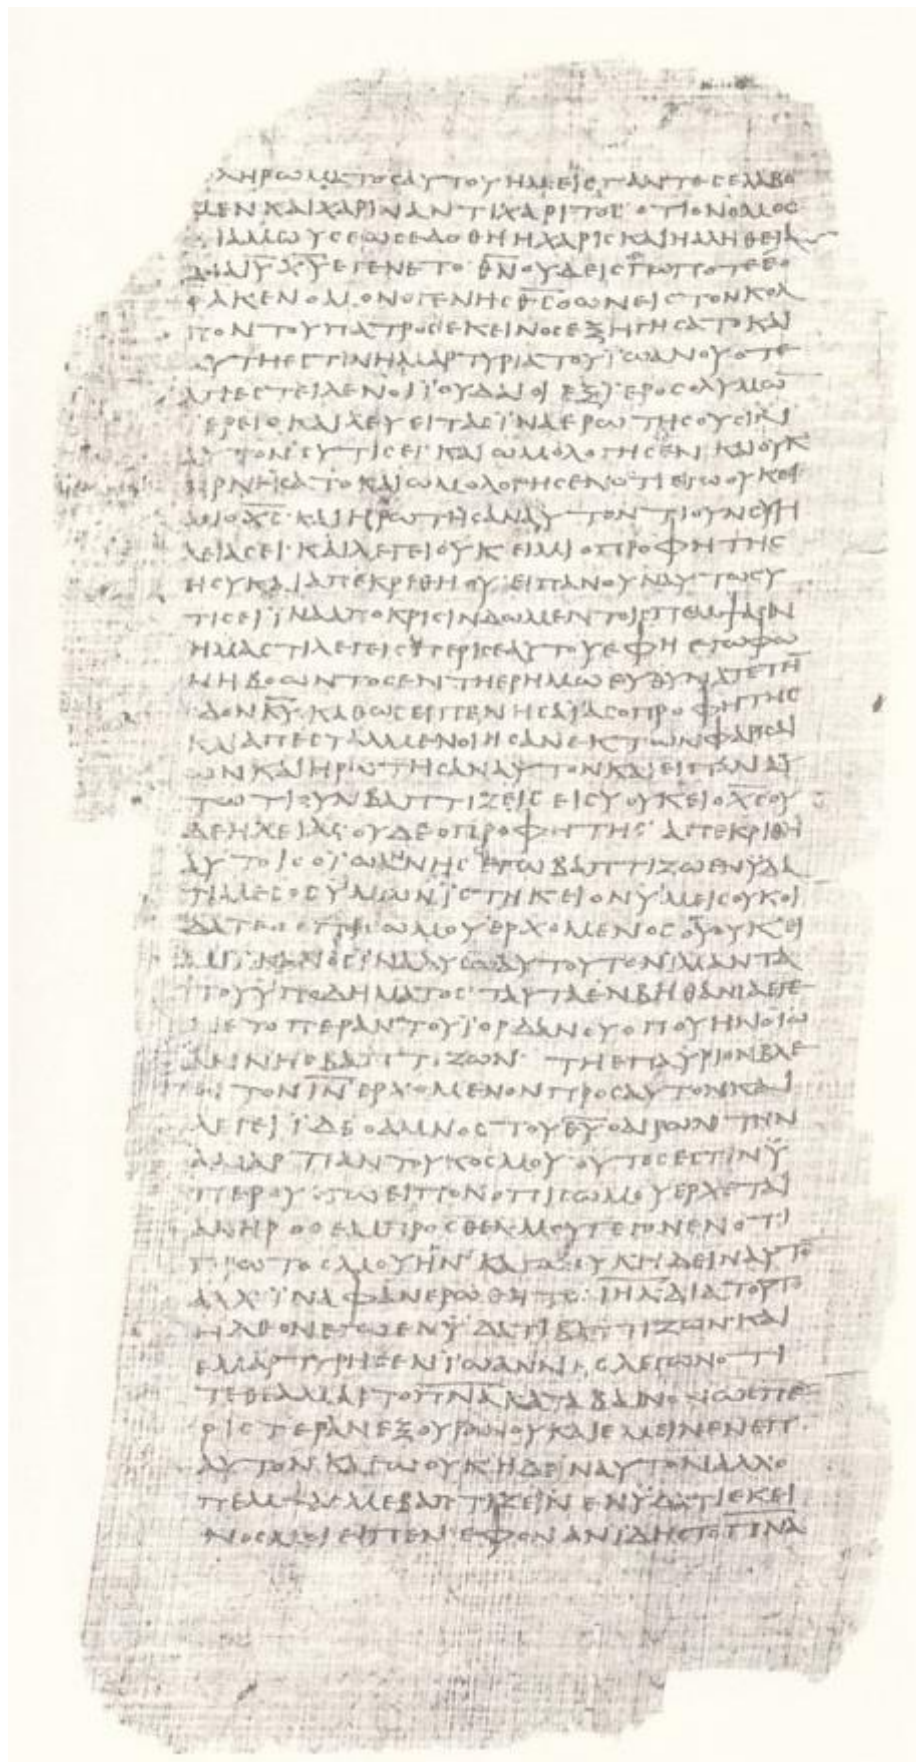 ΛΗΡΩΜΑΤΟCΑΥΤΟΥΗΜΕΙCΠΑΝΤΕCΕΛΑΒΟ
ΜΕΝΚΑΙΧΑΡΙΝΑΝΤΙΧΑΡΙΤΟC·ΟΤΙΟΝΟΜΟC
ΔΙΑΜΩΥCΕΩCΕΔΟΘΗΗΧΑΡΙCΚΑΙΗΑΛΗΘΕΙΑ
ΔΙΑΙΥ̅Χ̅Υ̅ΕΓΕΝΕΤΟ·Θ̅Ν̅ΟΥΔΕΙCΠΩΠΟΤΕΕΟ
ΡΑΚΕΝΟΜΟΝΟΓΕΝΗCΘ̅C̅ΟΩΝΕΙCΤΟΝΚΟΛ
ΠΟΝΤΟΥΠΑΤΡΟCΕΚΕΙΝΟCΕΞΗΓΗCΑΤΟΚΑΙ
ΑΥΤΗΕCΤΙΝΗΜΑΡΤΥΡΙΑΤΟΥΪΩΑΝΟΥΟΤΕ
ΑΠΕCΤΕΙΛΕΝΟΙΪΟΥΔΑΙΟΙΕΞΪΕΡΟCΟΛΥΜΩ̅
ΪΕΡΕΙCΚΑΙΛΕΥΕΙΤΑCΪΝΑΕΡΩΤΗCΟΥCΙΝ
ΑΥΤΟΝCΥΤΙCΕΙ·ΚΑΙΩΜΟΛΟΓΗCΕΝΚΑΙΟΥΚ
ΗΡΝΗCΑΤΟΚΑΙΩΜΟΛΟΓΗCΕΝΟΤΙΕΓΩΟΥΚΕΙ
ΜΙΟΧ̅C̅·ΚΑΙΗΡΩΤΗCΑΝΑΥΤΟΝΤΙΟΥΝCΥΗ
ΛΕΙΑCΕΙ·ΚΑΙΛΕΓΕΙΟΥΚΕΙΜΙΟΠΡΟΦΗΤΗC
ΗCΥΚΑΙΑΠΕΚΡΙΘΗΟΥ·ΕΙΠΑΝΟΥΝΑΥΤΩCΥ
ΤΙCΕΙΪΝΑΑΠΟΚΡΙCΙΝΔΩΜΕΝΤΟΙCΠΕΜΨΑCΙΝ
ΗΜΑCΤΙΛΕΓΕΙCΠΕΡΙCΕΑΥΤΟΥΕΦΗΕΓΩΦΩ
ΝΗΒΟΩΝΤΟCΕΝΤΗΕΡΗΜΩΕΥΘΥΝΑΤΕΤΗ̅
ΟΔΟΝΚ̅Υ̅·ΚΑΘΩCΕΙΠΕΝΗCΑΪΑCΟΠΡΟΦΗΤΗC
ΚΑΙΑΠΕCΤΑΛΜΕΝΟΙΗCΑΝΕΚΤΩΝΦΑΡΙCΑΙ
ΩΝΚΑΙΗΡΩΤΗCΑΝΑΥΤΟΝΚΑΙΕΙΠΑΝΑΥ
ΤΩΤΙΟΥΝΒΑΠΤΙΖΕΙCΕΙCΥΟΥΚΕΙΟΧ̅C̅ΟΥ
ΔΕΗΛΕΙΑC·ΟΥΔΕΟΠΡΟΦΗΤΗC·ΑΠΕΚΡΙΘΗ
ΑΥΤΟΙCΟΪΩΑΝΗCΕΓΩΒΑΠΤΙΖΩΕΝΫΔΑ
ΤΙΜΕCΟCΫΜΩΝΙCΤΗΚΕΙΟΝΫΜΕΙCΟΥΚΟΙ
ΔΑΤΕΟΟΠΙCΩΜΟΥΕΡΧΟΜΕΝΟCΟΥΟΥΚΕΙ
ΜΙΪΚΑΝΟCΪΝΑΛΥCΩΑΥΤΟΥΤΟΝΪΜΑΝΤΑ
ΤΟΥΫΠΟΔΗΜΑΤΟC·ΤΑΥΤΑΕΝΒΗΘΑΝΙΑΕΓΕ
ΝΕΤΟΠΕΡΑΝΤΟΥΪΟΡΔΑΝΟΥΟΠΟΥΗΝΟΪΩ
ΑΝΝΗCΒΑΠΤΙΖΩΝ·ΤΗΕΠΑΥΡΙΟΝΒΛΕ
ΠΕΙΤΟΝΙ̅Ν̅ΕΡΧΟΜΕΝΟΝΠΡΟCΑΥΤΟΝΚΑΙ
ΛΕΓΕΙΪΔΕΟΑΜΝΟCΤΟΥΘ̅Υ̅ΟΑΙΡΩΝΤΗΝ
ΑΜΑΡΤΙΑΝΤΟΥΚΟCΜΟΥ·ΟΥΤΟCΕCΤΙΝΫ
ΠΕΡΟΥΕΓΩΕΙΠΟΝΟΠΙCΩΜΟΥΕΡΧΕΤΑΙ
ΑΝΗΡΟCΕΜΠΡΟCΘΕΝΜΟΥΓΕΓΟΝΕΝΟΤΙ
ΠΡΩΤΟCΜΟΥΗΝ·ΚΑΓΩΟΥΚΗΔΕΙΝΑΥΤΟ̅
ΑΛΛΪΝΑΦΑΝΕΡΩΘΗΤΩΙ̅Η̅Λ̅·ΔΙΑΤΟΥΤΟ
ΗΛΘΟΝΕΓΩΕΝΫΔΑΤΙΒΑΠΤΙΖΩΝ·ΚΑΙ
ΕΜΑΡΤΥΡΗCΕΝΪΩΑΝΝΗCΛΕΓΩΝΟΤΙ
ΤΕΘΕΑΜΑΙΤΟΠ̅Ν̅Α̅ΚΑΤΑΒΑΙΝΟΝΩCΠΕ
ΡΙCΤΕΡΑΝΕΞΟΥΡΑΝΟΥΚΑΙΕΜΕΙΝΕΝΕΠ
ΑΥΤΟΝ·ΚΑΓΩΟΥΚΗΔΕΙΝΑΥΤΟΝΑΛΛΟ
ΠΕΜΨΑCΜΕΒΑΠΤΙΖΕΙΝΕΝΫΔΑΤΙΕΚΕΙ
ΝΟCΜΟΙΕΙΠΕΝ·ΕΦΟΝΑΝΙΔΗCΤΟΠ̅Ν̅Α̅